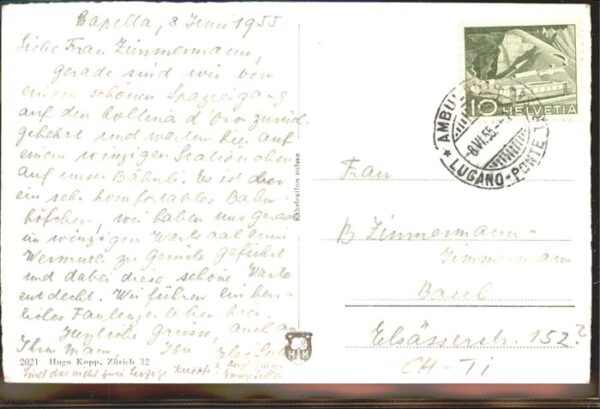 Capella, 8 Juni 1955
Liebe Frau Zimmermann,
gerade sind wir von
einem schönen Spaziergang
auf den collina d'oro zurück-
gekehrt und warten hier auf
einem winzigen Station oben
auf unser Bähnli. Es ist hier
ein sehr komfortables Bahn-
höfchen, wir haben uns gerade
im winzigen Wartsaal einen
Wermuth zu gemüte geführt
und dabei diese schöne Karte
entdeckt. Wir führen ein herr-
liches Faulenzerleben hier.
Herzliche Grüsse, auch an
Ihren Mann. Ihre
2021 Hugo Kopp, Zürich 32
Sind das nicht zwei herzige
Fabrication suisse
HK
10 HELVETIA
AMBU
8.VI.55
LUGANO-PONTE TR
Frau
B Zimmermann-
Zimmermann
Basel
Elsässerstr. 152?
CH-Ti